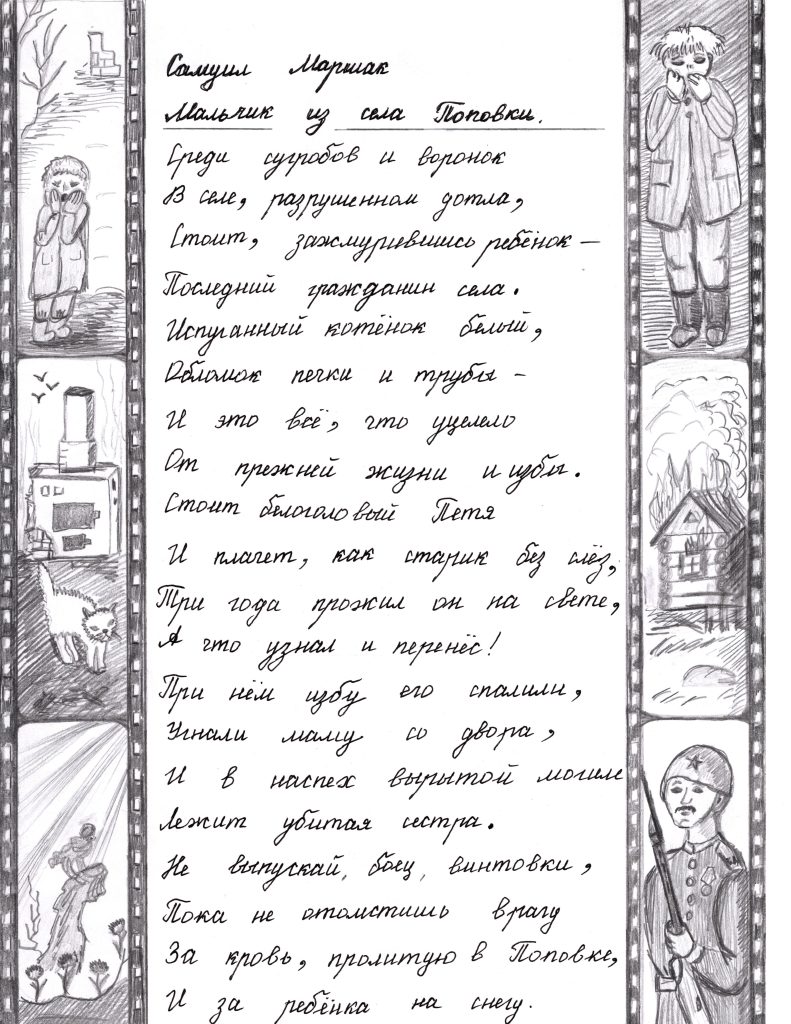 Самуил Маршак
Мальчик из села Поповки.
Среди сугробов и воронок
В селе, разрушенном дотла,
Стоит, зажмурившись ребёнок –
Последний гражданин села.
Испуганный котёнок белый,
Обломок печки и трубы –
И это всё, что уцелело
От прежней жизни и избы.
Стоит белоголовый Петя
И плачет, как старик без слёз,
Три года прожил он на свете,
А что узнал и перенёс!
При нём избу его спалили,
Угнали маму со двора,
И в наспех вырытой могиле
Лежит убитая сестра.
Не выпускай, боец, винтовки,
Пока не отомстишь врагу
За кровь, пролитую в Поповке,
И за ребёнка на снегу.